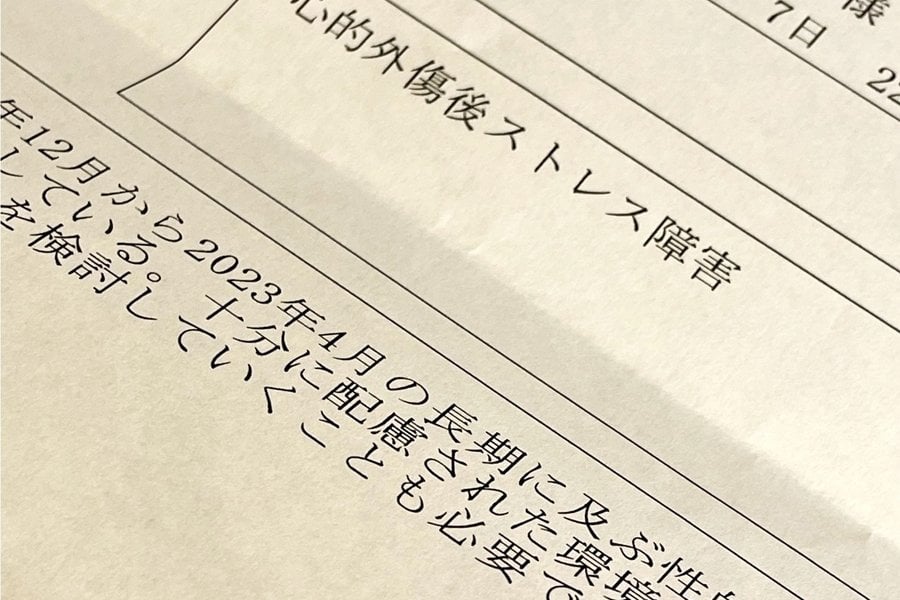 様
7日
22
心的外傷後ストレス障害
年12月から2023年4月の長期に及ぶ性的
している。十分に配慮された環境
を検討していくことも必要で